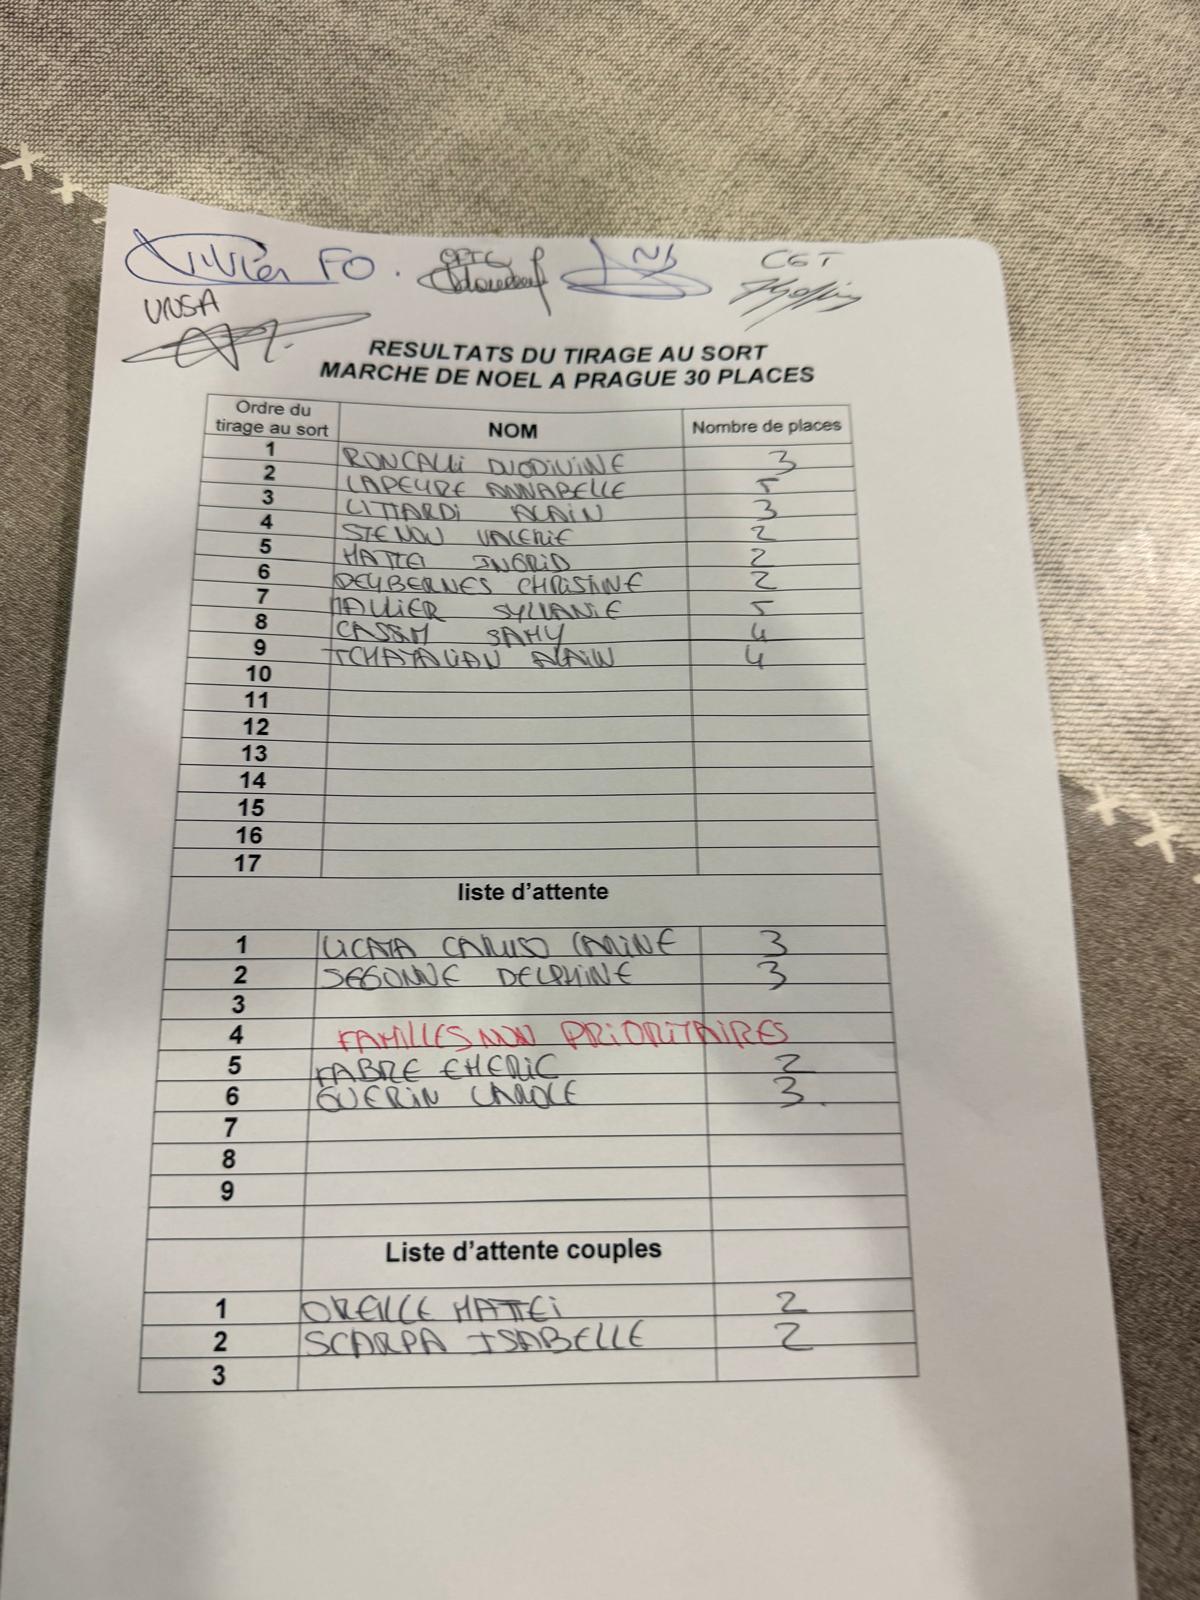 Olivier FO. CFTC CGT
UNSA
RESULTATS DU TIRAGE AU SORT
MARCHE DE NOEL A PRAGUE 30 PLACES
Ordre du tirage au sort NOM Nombre de places
1 RONCALLI LUDIVINE 3
2 LAPEYRE ANNABELLE 5
3 LITTARDI ALAIN 3
4 STENOU VALERIE 2
5 MATTEI INGRID 2
6 DEYBERNES CHRISTINE 2
7 SYLVANIE 5
8 CASSIM SAMY 4
9 TCHAYALIAN ALAIN 4
10
11
12
13
14
15
16
17
liste d'attente
1 LICATA CARUSO CARINE 3
2 SEGONNE DELPHINE 3
3
4 FAMILLES NON PRIORITAIRES
5 FABRE EMERIC 2
6 GUERIN CAROLE 3
7
8
9
Liste d'attente couples
1 OREILLE MATTEI 2
2 SCARPA ISABELLE 2
3